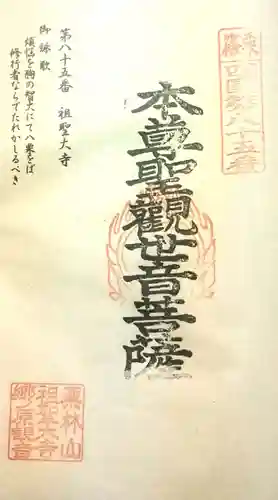 四国第八十五番
本尊聖觀世音菩薩
第八十五番 祖聖大寺
御詠歌
煩悩を胸の智火にて八栗をば
修行者ならでたれかしるべき
祖聖大寺
郷ノ原観音